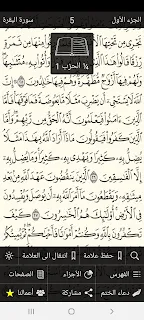 الجزء الأول 5 سورة البقرة
تَجْرِي مِن تَحْتِهَا مِنْهَا مِن ثَمَرَةٍ رِّزْقًا
¼ الحزب 1
وَلَهُمْ فِيهَآ أَزْوَٰجٌ مُّطَهَّرَةٌ وَهُمْ فِيهَا خَٰلِدُونَ ٢٥
إِنَّ ٱللَّهَ لَا يَسْتَحْىِۦٓ أَن يَضْرِبَ مَثَلًا مَّا بَعُوضَةً فَمَا فَوْقَهَا
فَأَمَّا ٱلَّذِينَ ءَامَنُوا۟ فَيَعْلَمُونَ أَنَّهُ ٱلْحَقُّ مِن رَّبِّهِمْ وَأَمَّا ٱلَّذِينَ
كَفَرُوا۟ فَيَقُولُونَ مَاذَآ أَرَادَ ٱللَّهُ بِهَٰذَا مَثَلًا يُضِلُّ
بِهِۦ كَثِيرًا وَيَهْدِى بِهِۦ كَثِيرًا وَمَا يُضِلُّ بِهِۦٓ إِلَّا
ٱلْفَٰسِقِينَ ٢٦ ٱلَّذِينَ يَنقُضُونَ عَهْدَ ٱللَّهِ مِنۢ بَعْدِ
مِيثَٰقِهِۦ وَيَقْطَعُونَ مَآ أَمَرَ ٱللَّهُ بِهِۦٓ أَن يُوصَلَ وَيُفْسِدُونَ
فِى ٱلْأَرْضِ أُو۟لَٰٓئِكَ هُمُ ٱلْخَٰسِرُونَ ٢٧ كَيْفَ
تَكْفُرُونَ بِٱللَّهِ وَكُنتُمْ أَمْوَٰتًا فَأَحْيَٰكُمْ ثُمَّ
حفظ علامة انتقال الى العلامة
الفهرس الأجزاء الصفحات
دعاء الختم مشاركة أعمالنا